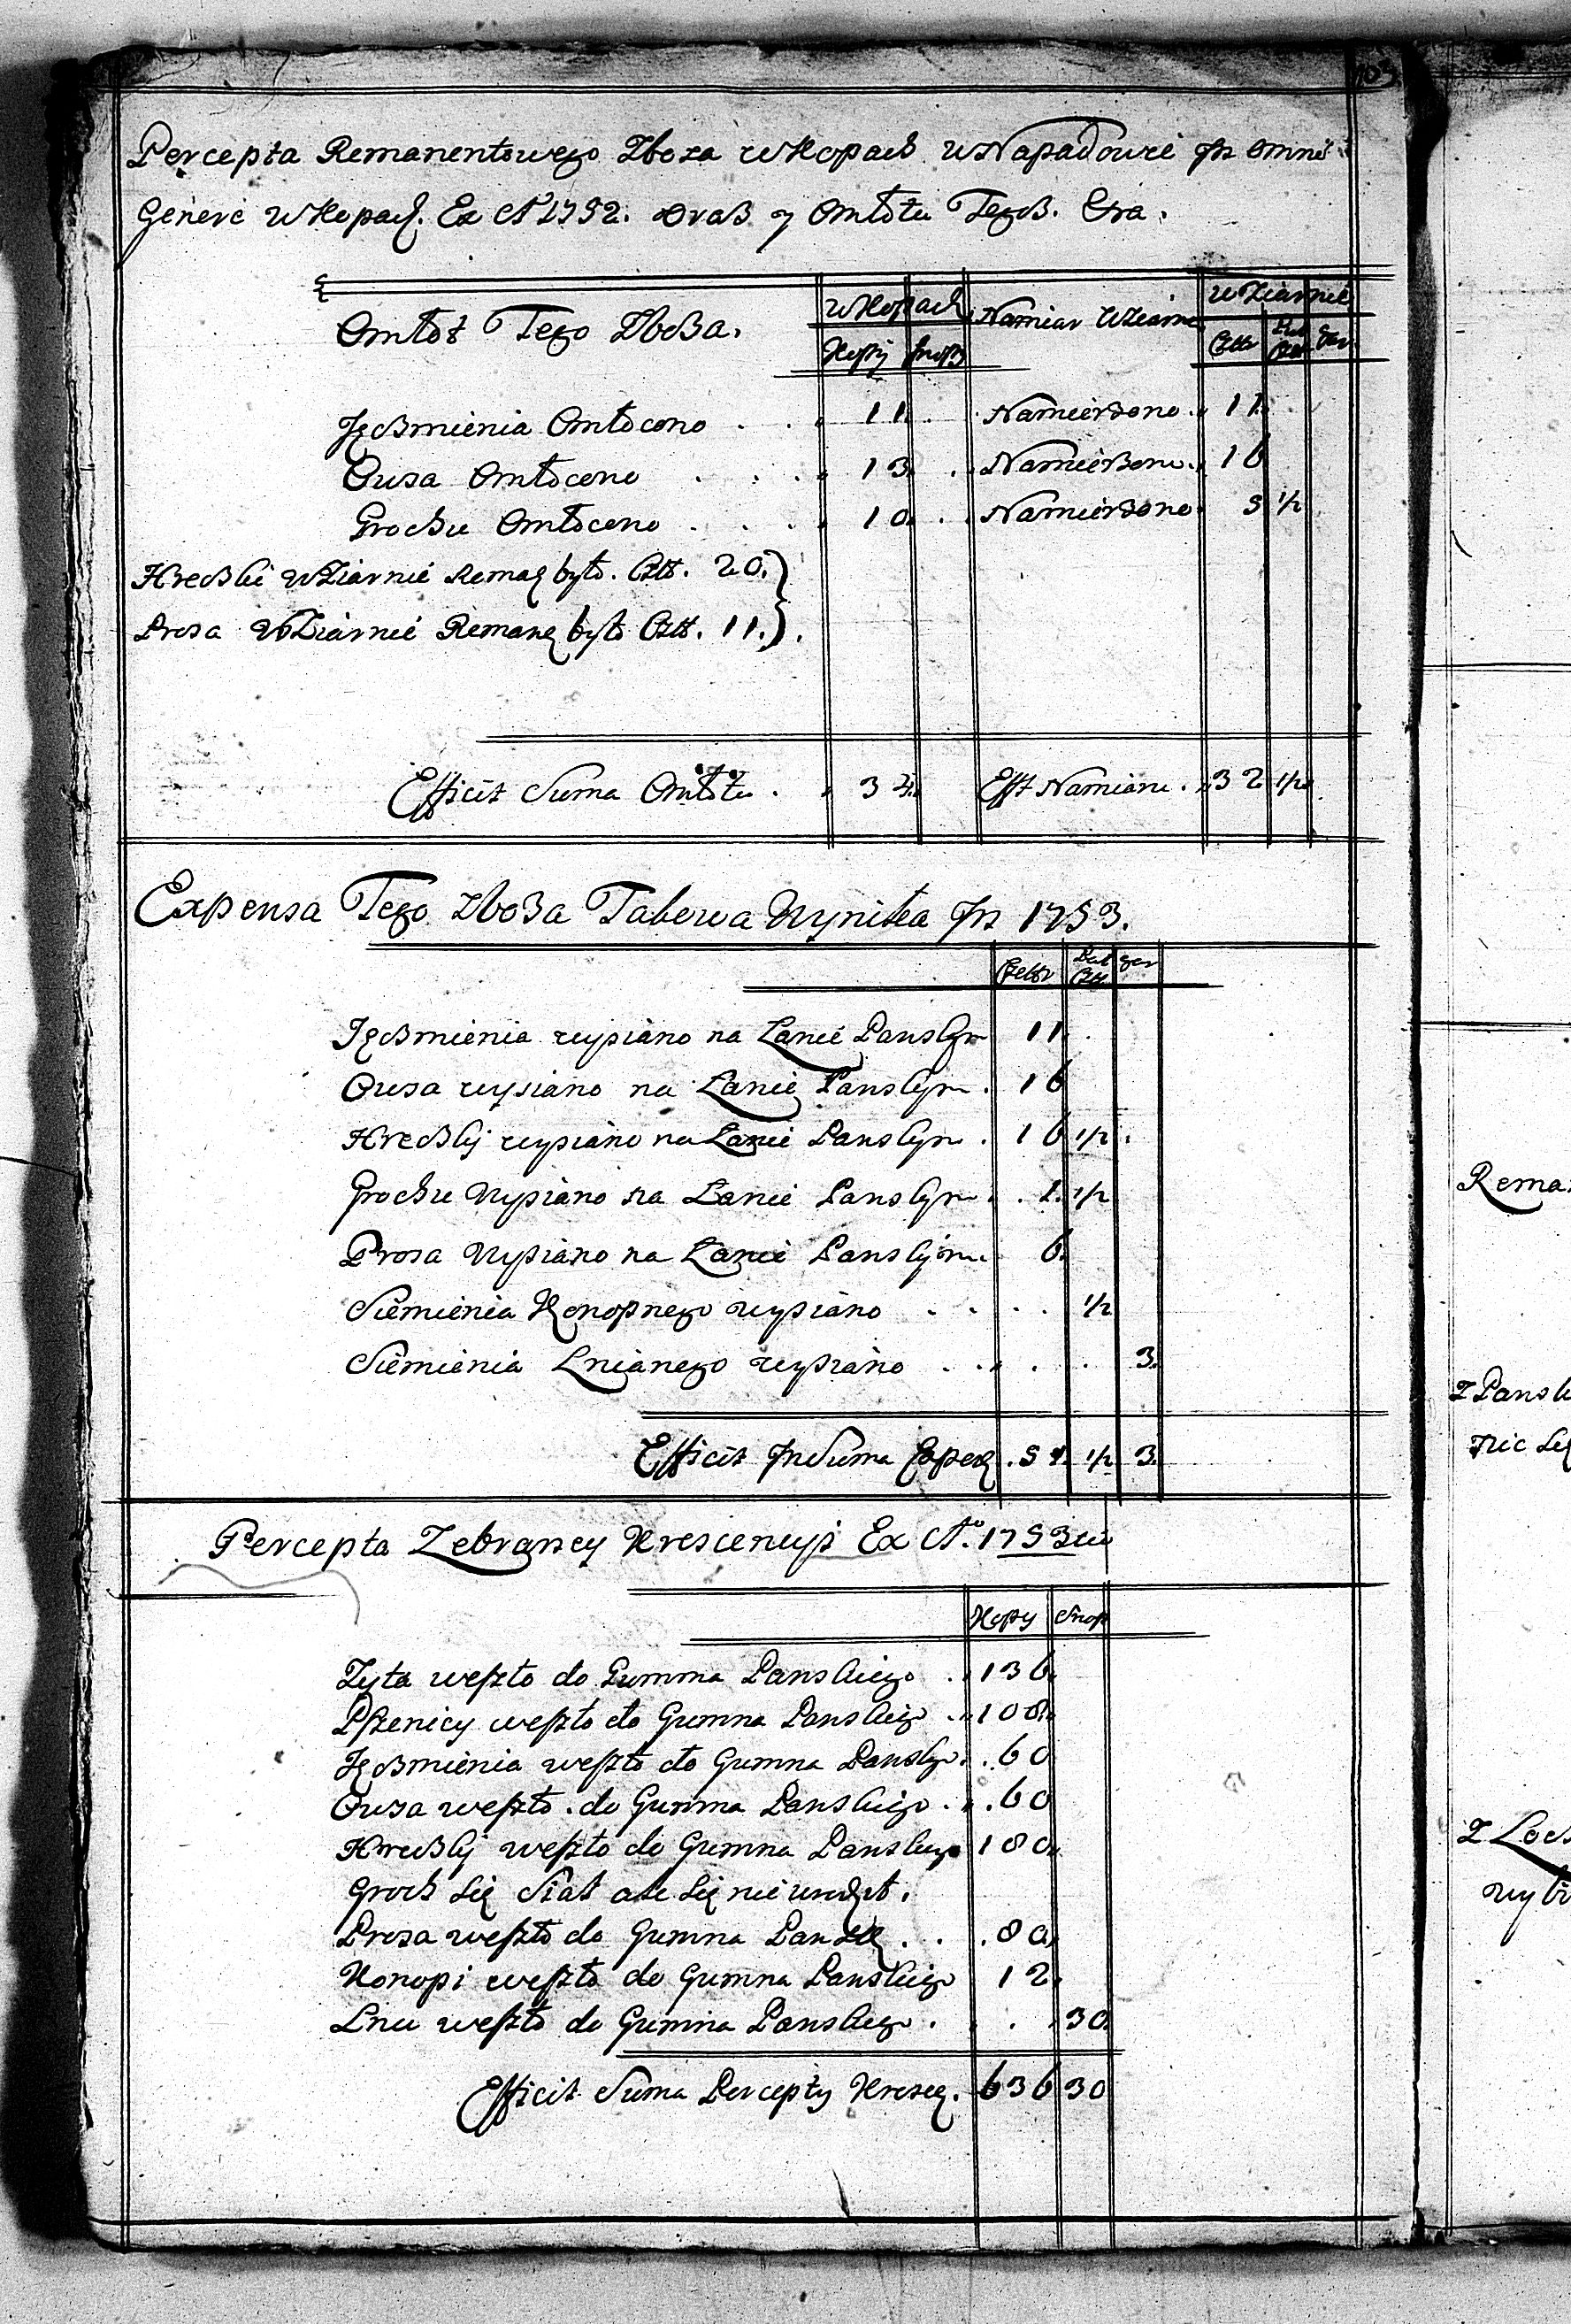 103
Percepta Remanentowego Zboza w Kopach w Napadowce in omni
Genere w Kopach. Ex Aº 1752. oraz y Omłotu Tegoz. Etra.
Omłot Tego Zboża. w Kopach Namiar w Ziarnie w Ziarnie
Kopy snopy Cztt Puł Cztt Gar
Jęczmienia Omłocono 11. Namierzono 11.
Owsa Omłocono 13. Namierzono 16
Grochu Omłocono 10. Namierzono 5 1/2
Hreczki w Ziarnie Reman było. Cztt. 20.
Prosa w Ziarnie Reman było Cztt. 11.
Efficit Suma Omłotu 34. Efft Namiaru 32 1/2
Expensa Tego Zboża Takowa Wynikła in 1753.
Czettr Puł Cztt gar
Jęczmienia wysiano na Łanie Panskym 11.
Owsa wysiano na Łanie Panskym 16
Hreczky wysiano na Łanie Panskym 16 1/2
Grochu Wysiano na Łanie Panskym 1. 1/2
Prosa Wysiano na Łanie Panskym 6.
Siemienia Konopnego wysiano 1/2
Siemienia Lnianego wysiano 3.
Efficit In Suma Expen 51. 1/2 3.
Percepta Zebraney Krescencyi Ex Aº. 1753tii
Kopy Snop
Zyta weszło do Gumna Panskiego 136.
Pszenicy weszło do Gumna Panskigo 108.
Jęczmienia weszło do Gumna Panskgo 60
Owsa weszło do Gumna Panskiego 60
Hreczky weszło do Gumna Panskiego 180.
Groch się Siał ale się nie urodził.
Prosa weszło do Gumna Pansk 80.
Konopi weszło do Gumna Panskiego 12.
Lnu weszło do Gumna Panskiego 30.
Efficit Suma Percepty Kresen. 636 30
Reman
Z Pansk